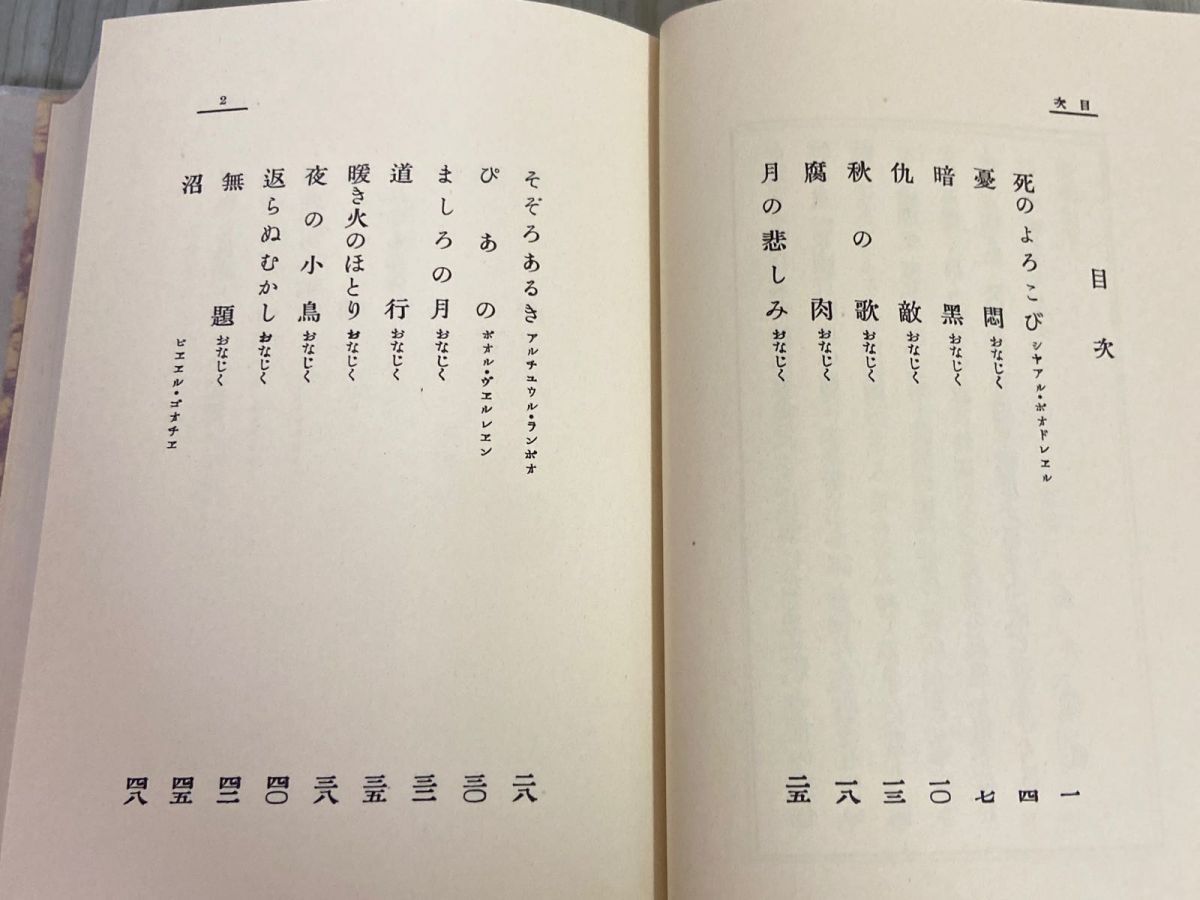 目次
目次
死のよろこび シヤアル・ボオドレヱル 一
憂悶 おなじく 四
暗黑 おなじく 七
仇敵 おなじく 一〇
秋の歌 おなじく 一三
腐肉 おなじく 一八
月の悲しみ おなじく 二五
2
そぞろあるき アルチユウル・ランボオ 二八
ぴあの ポオル・ヴヱルレヱン 三〇
ましろの月 おなじく 三二
道行 おなじく 三五
暖き火のほとり おなじく 三八
夜の小鳥 おなじく 四〇
返らぬむかし おなじく 四二
無題 おなじく 四五
沼 ピヱヱル・ゴオチヱ 四八